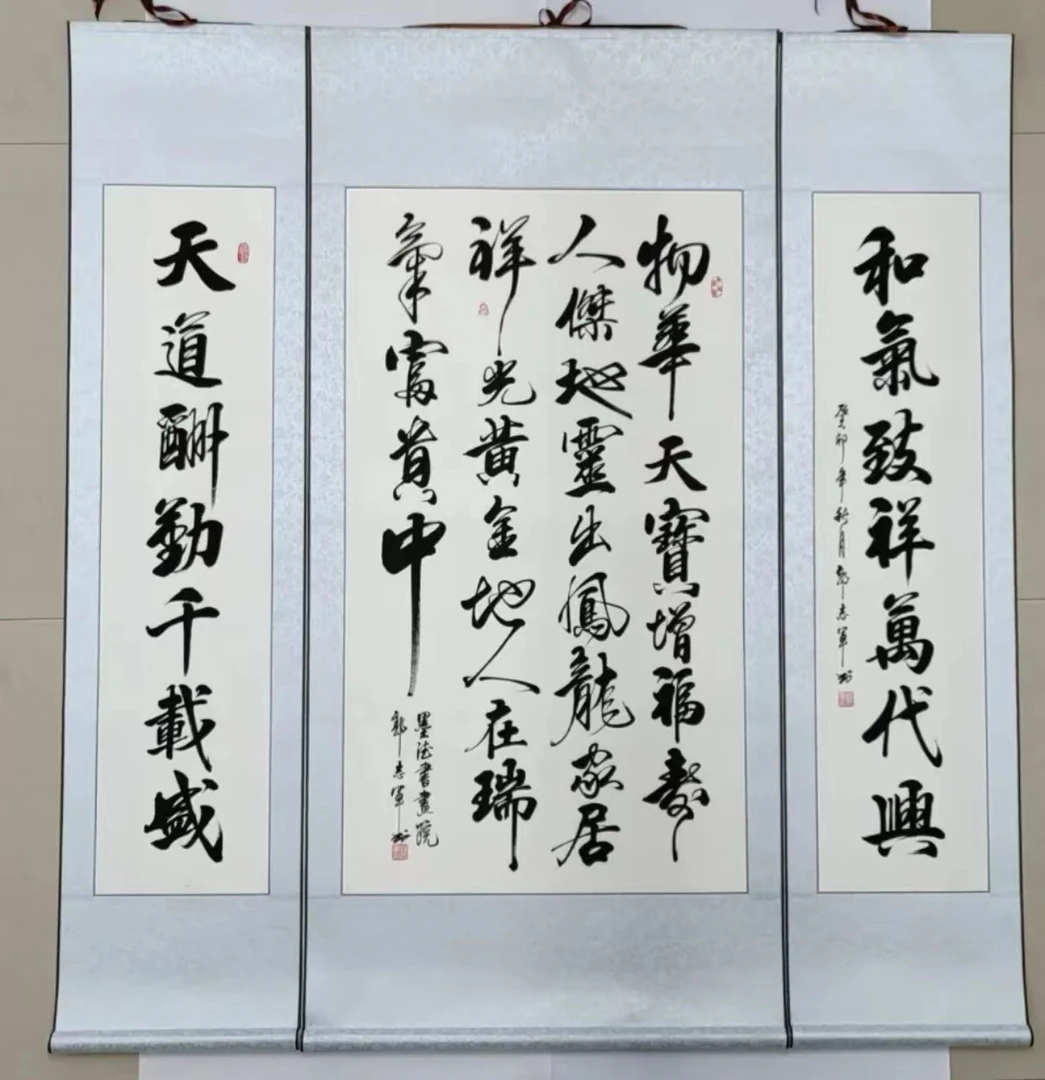 和氣致祥萬代興
癸卯年秋月郭志軍書
物華天寶增福壽
人傑地靈出鳳龍家居
祥光黃金地人在瑞
氣富貴中
墨 書畫院
郭志軍書
天道酬勤千載盛